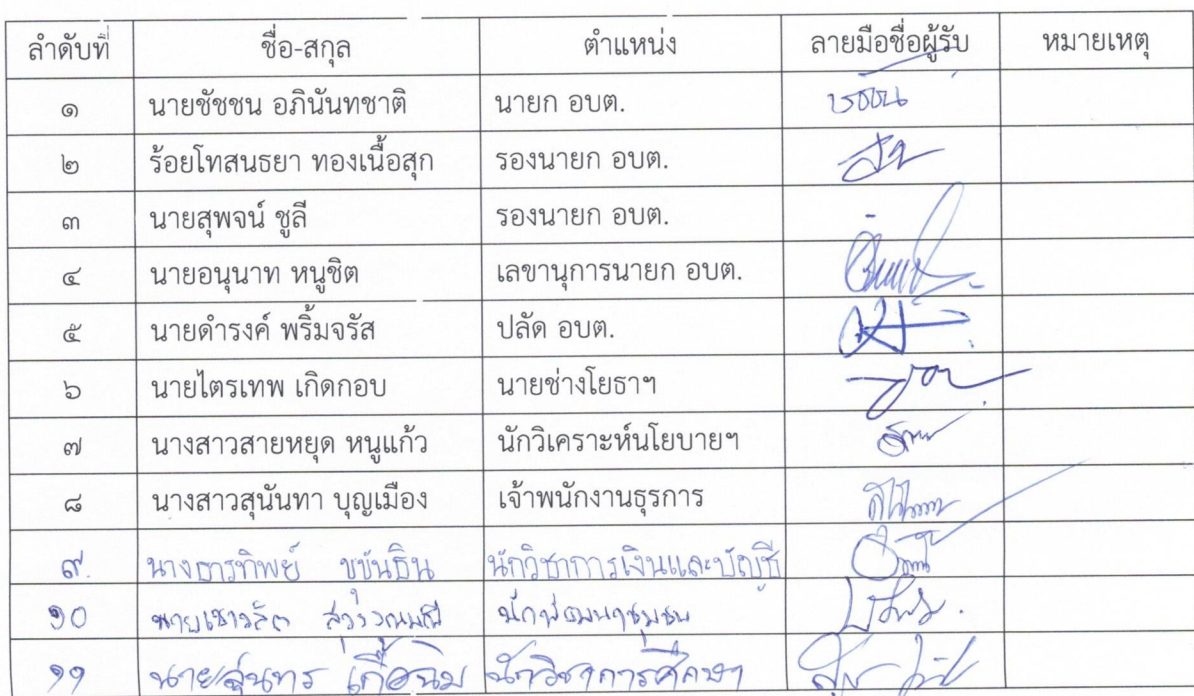 ลำดับที่ ชื่อ-สกุล ตำแหน่ง ลายมือชื่อผู้รับ หมายเหตุ
๑ นายชัชชน อภินันทชาติ นายก อบต.
๒ ร้อยโทสนธยา ทองเนื้อสุก รองนายก อบต.
๓ นายสุพจน์ ชูลี รองนายก อบต.
๔ นายอนุนาท หนูชิต เลขานุการนายก อบต.
๕ นายดำรงค์ พริ้มจรัส ปลัด อบต.
๖ นายไตรเทพ เกิดกอบ นายช่างโยธาฯ
๗ นางสาวสายหยุด หนูแก้ว นักวิเคราะห์นโยบายฯ
๘ นางสาวสุนันทา บุญเมือง เจ้าพนักงานธุรการ
๙. นางธารทิพย์ นักวิชาการเงินและบัญชี
๑๐ นายเชาวลิต สุวรรณมณี นักพัฒนาชุมชน
๑๑ นายสุนทร เกื้อฉิม นักวิชาการศึกษาฯ